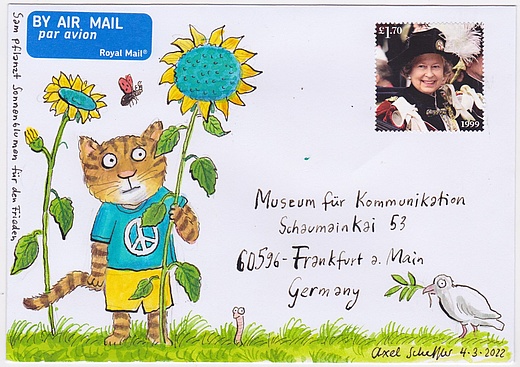 BY AIR MAIL
par avion
Royal Mail®
Sam pflanzt Sonnenblumen für den Frieden
£1.70
1999
Museum für Kommunikation
Schaumainkai 53
60596-Frankfurt a. Main
Germany
Axel Scheffler 4.3.2022